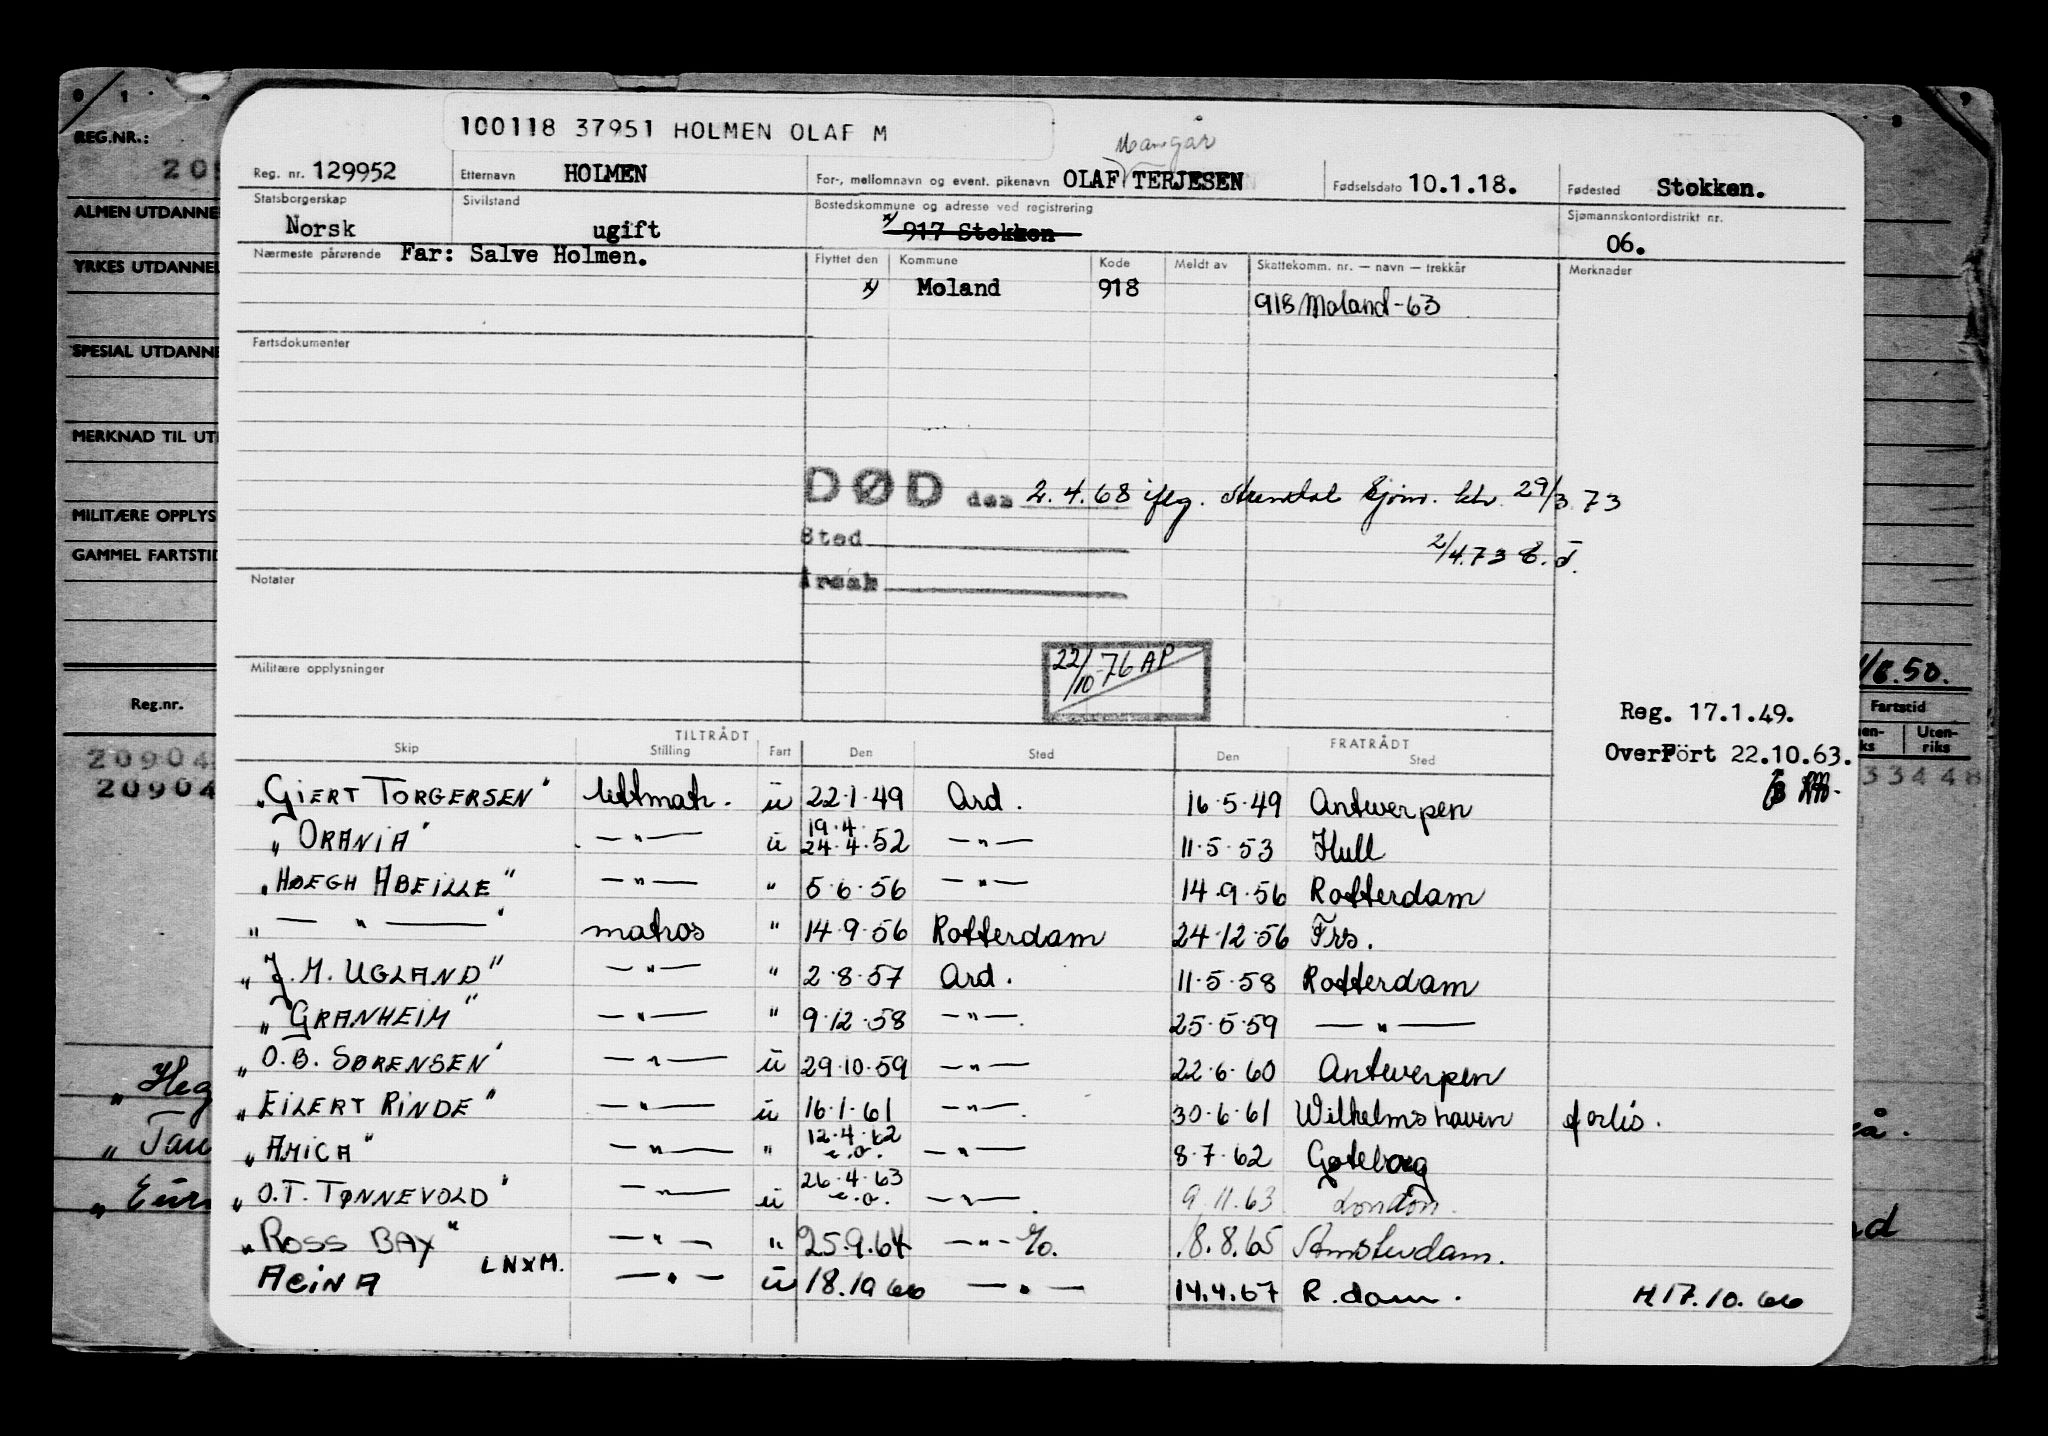 100118 37951 HOLMEN OLAF M
REG.NR.:
Reg. nr. 129952 Etternavn HOLMEN For-, mellomnavn og event. pikenavn OLAF TERJESEN Fødselsdato 10.1.18. Fødested Stokken.
ALMEN UTDANNE
Statsborgerskap Norsk Sivilstand ugift Bostedskommune og adresse ved registrering x) 917 Stokken Sjømannskontordistrikt nr. 06.
YRKES UTDANNE
Nærmeste pårørende Far: Salve Holmen. Flyttet den Kommune Kode Meldt av Skattekomm. nr. — navn — trekkår Merknader
x) Moland 918 918 Moland-63
SPESIAL UTDANNE
Fartsdokumenter
MERKNAD TIL UT
DØD den 2.4.68 iflg. Sjøm. ktr. 29/3 73
MILITÆRE OPPLYS
Sted 2/4.73 E.T.
GAMMEL FARTSTID
Notater Årsak
22/10-76 AP
Militære opplysninger
1/8.50.
Reg.nr. Reg. 17.1.49. Fartstid
Overført 22.10.63. Uten-riks
TILTRÅDT FRATRÅDT
Skip Stilling Fart Den Sted Den Sted
20904 33448
20904
"GIERT TORGERSEN" lettmatr. u 22.1.49 Ard. 16.5.49 Antwerpen
"ORANIA" —"— u 19.4. 24.4.52 —"— 11.5.53 Hull
"HØEGH ABEILLE" —"— " 5.6.56 —"— 14.9.56 Rotterdam
"— " —" matros " 14.9.56 Rotterdam 24.12.56 Frs.
"J.M. UGLAND" —"— " 2.8.57 Ard. 11.5.58 Rotterdam
"GRANHEIM" —"— " 9.12.58 —"—. 25.5.59 —"—
"O.B. SØRENSEN" —"— u 29.10.59 —"— 22.6.60 Antwerpen
"EILERT RINDE" —"— u 16.1.61 —"—. 30.6.61 Wilhelmshaven forlis.
"AMICA" —"— " 12.4.62 e.o. —"— 8.7.62 Gøteborg
"O.T. TØNNEVOLD" —"— u 26.4.63 e.o. —"—. 9.11.63 London.
"ROSS BAY" —"— " 25.9.64 —"— 8.8.65 Amsterdam.
ACINA LNXM. —"— u 18.10 66 —"— 14.4.67 R.dam. H17.10.66